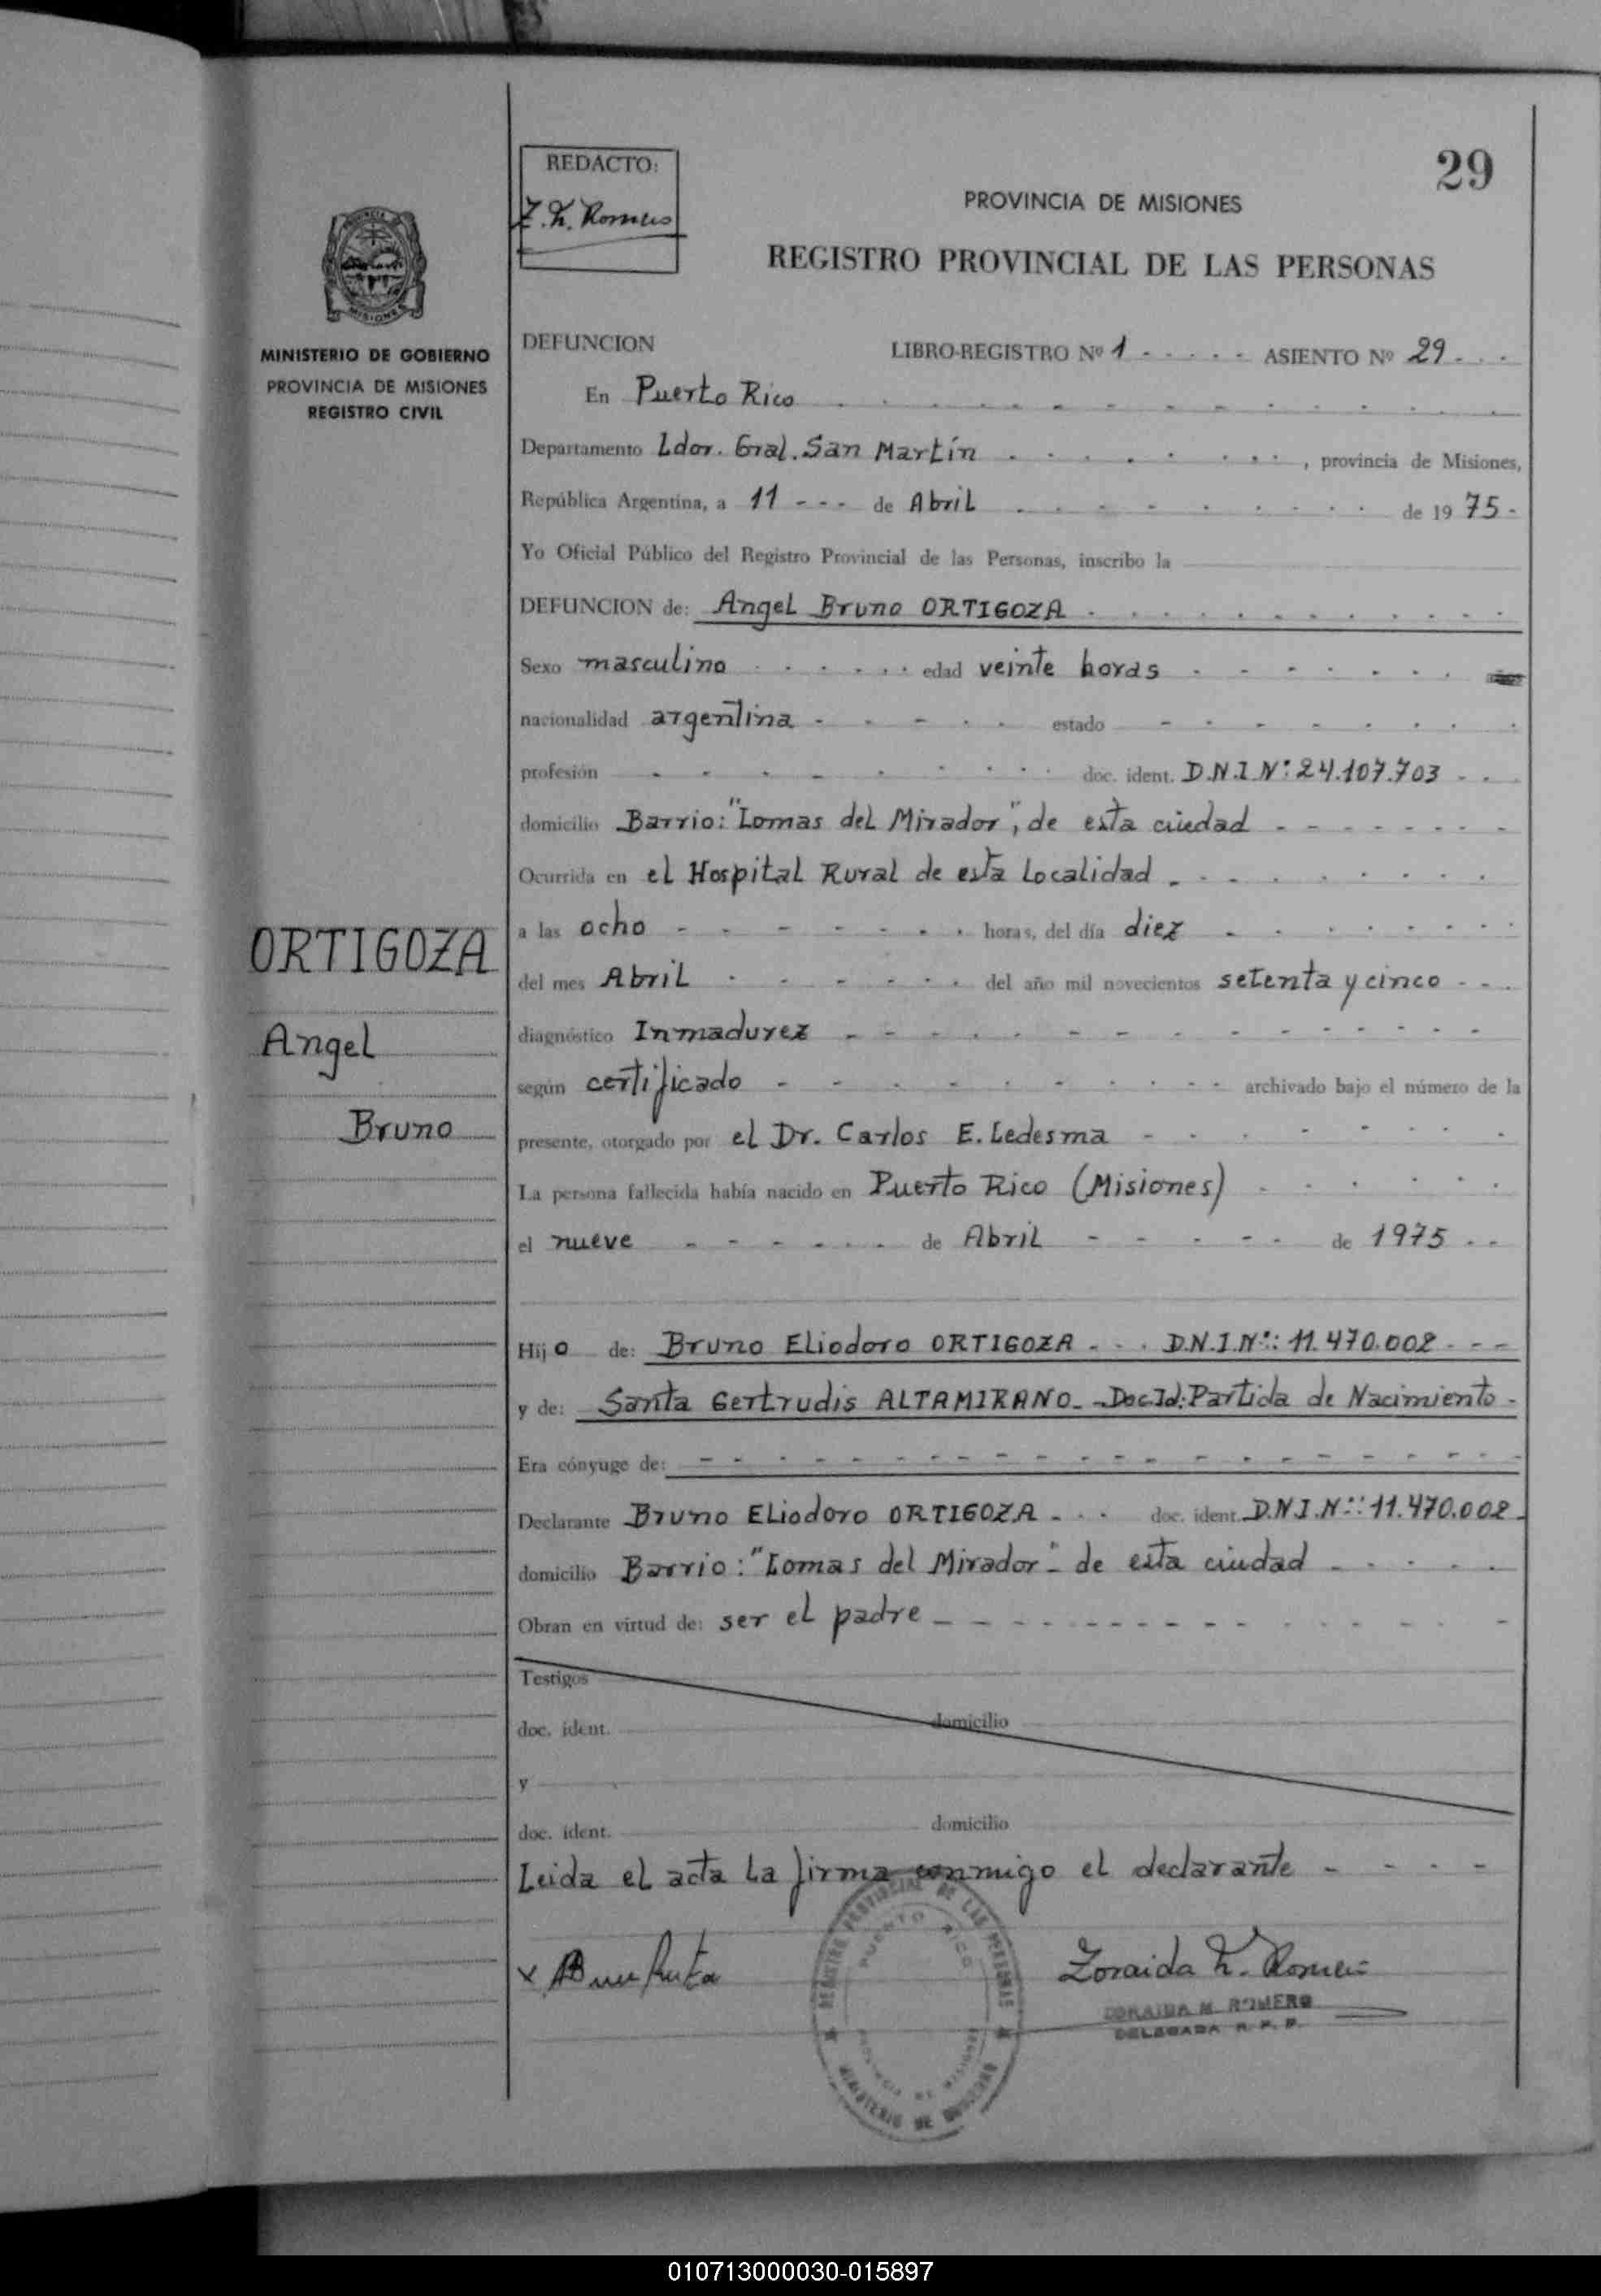 29
REDACTO:
Z. M. Romero
PROVINCIA DE MISIONES
REGISTRO PROVINCIAL DE LAS PERSONAS
MISIONES
MINISTERIO DE GOBIERNO
PROVINCIA DE MISIONES
REGISTRO CIVIL
DEFUNCION LIBRO-REGISTRO Nº 1 - - - - - ASIENTO Nº 29 - - -
En Puerto Rico
Departamento Ldor. Gral. San Martín , provincia de Misiones,
República Argentina, a 11 - - - de Abril de 19 75 -
Yo Oficial Público del Registro Provincial de las Personas, inscribo la
DEFUNCION de: Angel Bruno ORTIGOZA
Sexo masculino edad veinte horas
nacionalidad argentina estado
profesión doc. ident. D.N.I Nº: 24.107.703
domicilio Barrio: "Lomas del Mirador", de esta ciudad
Ocurrida en el Hospital Rural de esta Localidad
a las ocho horas, del día diez
del mes Abril del año mil novecientos setenta y cinco
diagnóstico Inmadurez
según certificado archivado bajo el número de la
presente, otorgado por el Dr. Carlos E. Ledesma
La persona fallecida había nacido en Puerto Rico (Misiones)
el nueve de Abril de 1975
ORTIGOZA
Angel
Bruno
Hijo de: Bruno Eliodoro ORTIGOZA - - - D.N.I.Nº: 11.470.002 - - -
y de: Santa Gertrudis ALTAMIRANO - - Doc.Id: Partida de Nacimiento -
Era cónyuge de:
Declarante Bruno Eliodoro ORTIGOZA - - - doc. ident. D.N.I.Nº: 11.470.002 -
domicilio Barrio: "Lomas del Mirador" - de esta ciudad
Obran en virtud de: ser el padre
Testigos
doc. ident. domicilio
y
doc. ident. domicilio
Leida el acta la firma conmigo el declarante - - - -
REGISTRO PROVINCIAL DE LAS PERSONAS
PUERTO RICO
PROVINCIA DE MISIONES
MINISTERIO DE GOBIERNO
Zoraida M. Romero
ZORAIDA M. ROMERO
DELEGADA R. P. P.
010713000030-015897